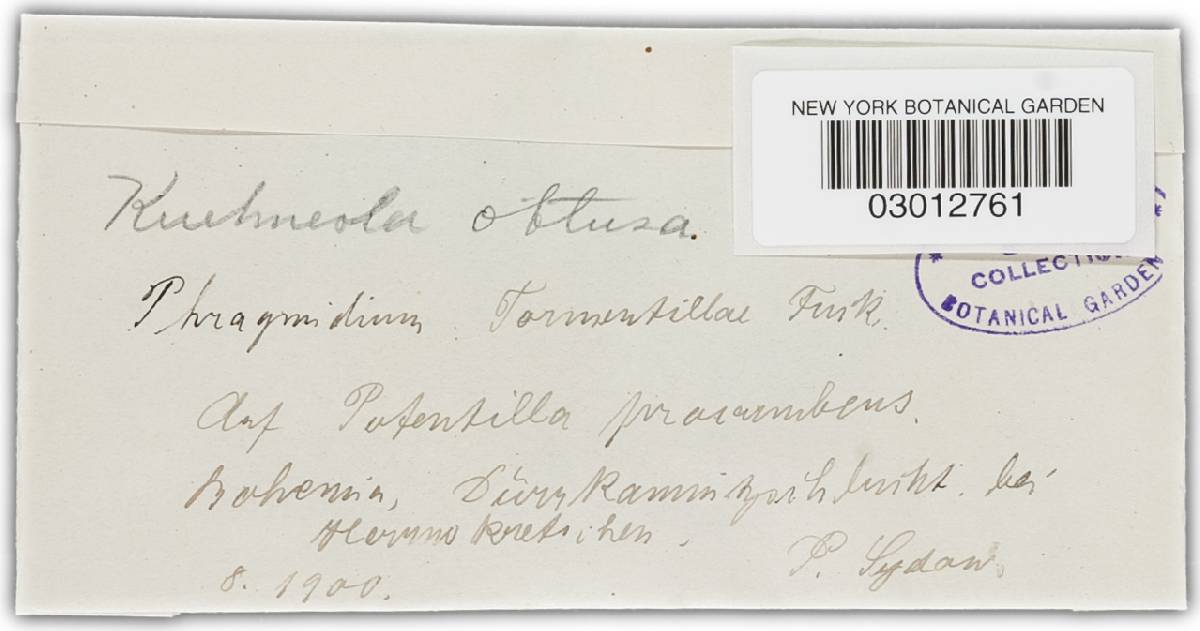 NEW YORK BOTANICAL GARDEN
03012761
COLLECTION
BOTANICAL GARDEN
Kuehneola obtusa.
Phragmidium Tormentillae Fuck.
Auf Potentilla procumbens.
Bohemia, Dürrkamnitzschlucht bei
Herrnskretschen.
8. 1900.
P. Sydow